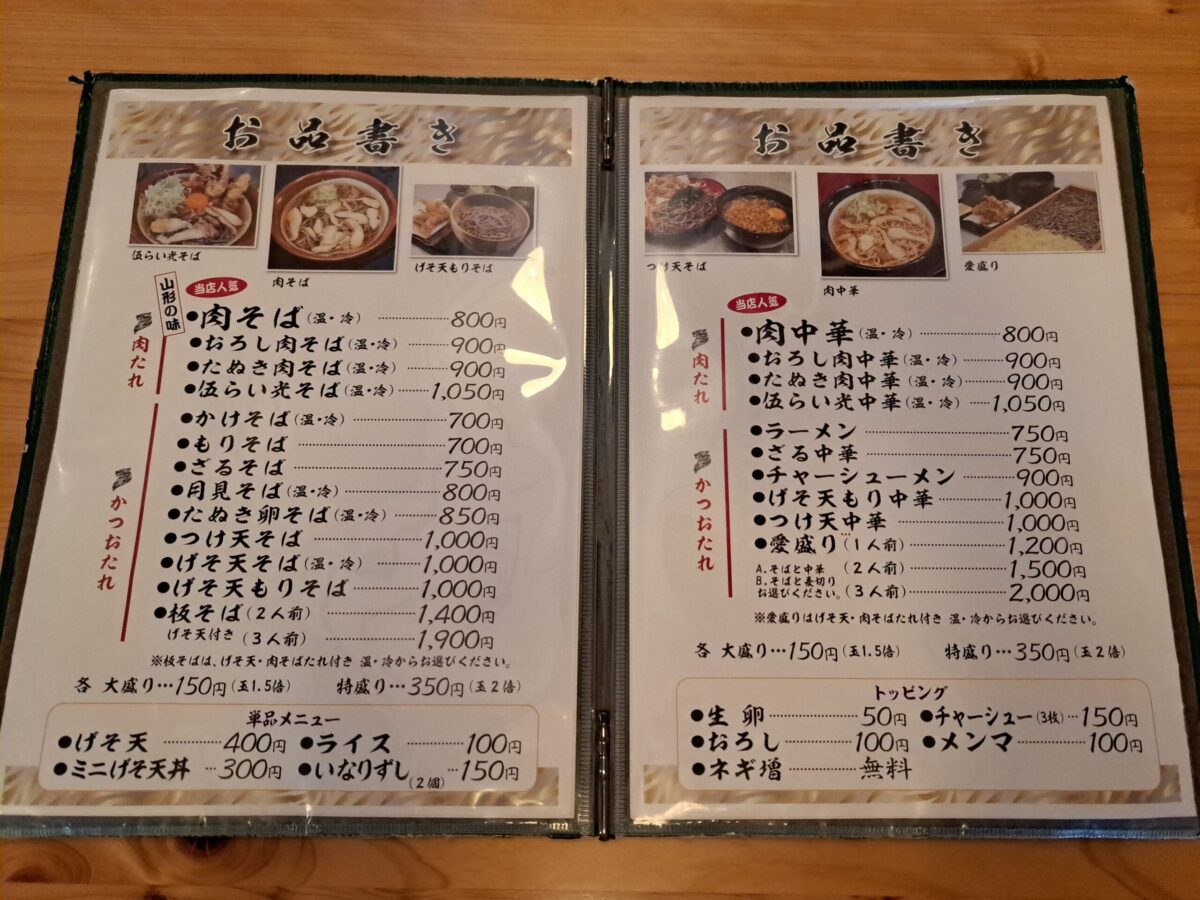 お品書き
伍らい光そば
肉そば
げそ天もりそば
山形の味
当店人気
肉たれ
●肉そば(温・冷)…………800円
●おろし肉そば(温・冷)…………900円
●たぬき肉そば(温・冷)…………900円
●伍らい光そば(温・冷)……1,050円
かつおたれ
●かけそば(温・冷)…………700円
●もりそば…………700円
●ざるそば…………750円
●月見そば(温・冷)…………800円
●たぬき卵そば(温・冷)……850円
●つけ天そば…………1,000円
●げそ天そば(温・冷)……1,000円
●げそ天もりそば…………1,000円
●板そば(2人前)…………1,400円
げそ天付き(3人前)…………1,900円
※板そばは、げそ天・肉そばたれ付き 温・冷からお選びください。
各 大盛り…150円(玉1.5倍) 特盛り…350円(玉2倍)
単品メニュー
●げそ天…………400円 ●ライス…………100円
●ミニげそ天丼…300円 ●いなりずし(2個)…150円
お品書き
つけ天そば
肉中華
愛盛り
当店人気
肉たれ
●肉中華(温・冷)…………800円
●おろし肉中華(温・冷)……900円
●たぬき肉中華(温・冷)……900円
●伍らい光中華(温・冷)…1,050円
かつおたれ
●ラーメン…………750円
●ざる中華…………750円
●チャーシューメン…………900円
●げそ天もり中華…………1,000円
●つけ天中華…………1,000円
●愛盛り(1人前)…………1,200円
A.そばと中華 (2人前)…………1,500円
B.そばと麦切り
お選びください。(3人前)…………2,000円
※愛盛りはげそ天・肉そばたれ付き 温・冷からお選びください。
各 大盛り…150円(玉1.5倍) 特盛り…350円(玉2倍)
トッピング
●生卵…………50円 ●チャーシュー(3枚)…150円
●おろし…………100円 ●メンマ…………100円
●ネギ増…………無料